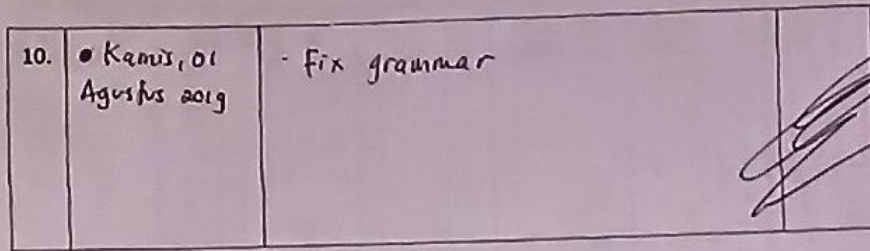 10.
• Kamis, 01
Agustus 2019
- Fix grammar